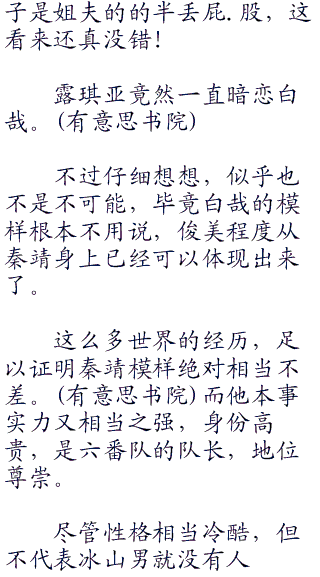 子是姐夫的的半丢屁.股，这
看来还真没错！
露琪亚竟然一直暗恋白
哉。(有意思书院)
不过仔细想想，似乎也
不是不可能，毕竟白哉的模
样根本不用说，俊美程度从
秦靖身上已经可以体现出来
了。
这么多世界的经历，足
以证明秦靖模样绝对相当不
差。(有意思书院)而他本事
实力又相当之强，身份高
贵，是六番队的队长，地位
尊崇。
尽管性格相当冷酷，但
不代表冰山男就没有人